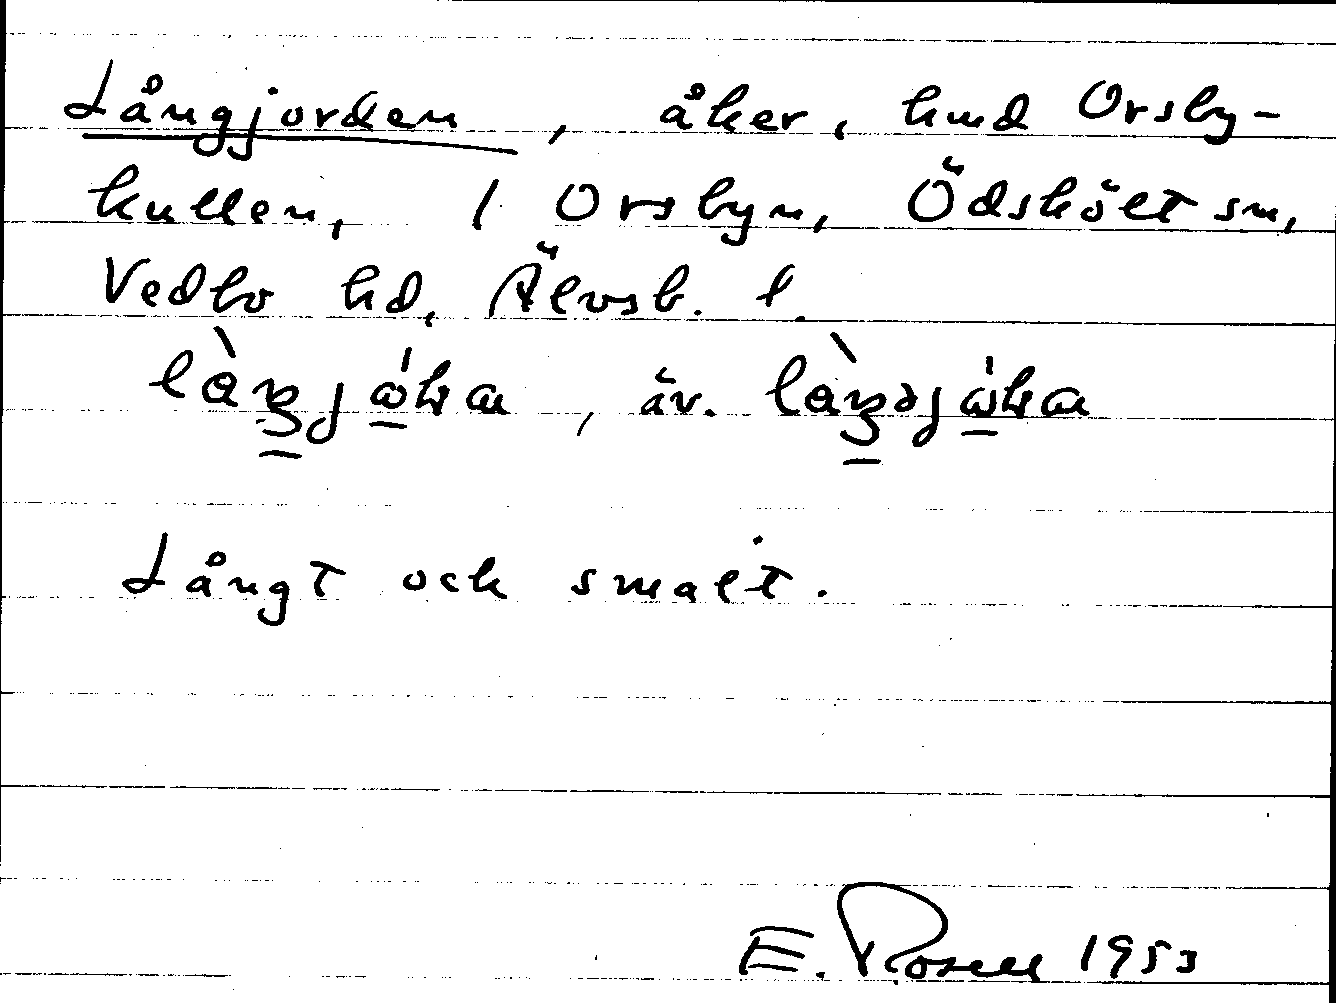 Långjorden, åker, hmd Orsby-
kullen, 1 Orsbyn, Ödskölt sn,
Vedbo hd, Älvsb. l.
, äv.
Långt och smalt.
E. Rosell 1953